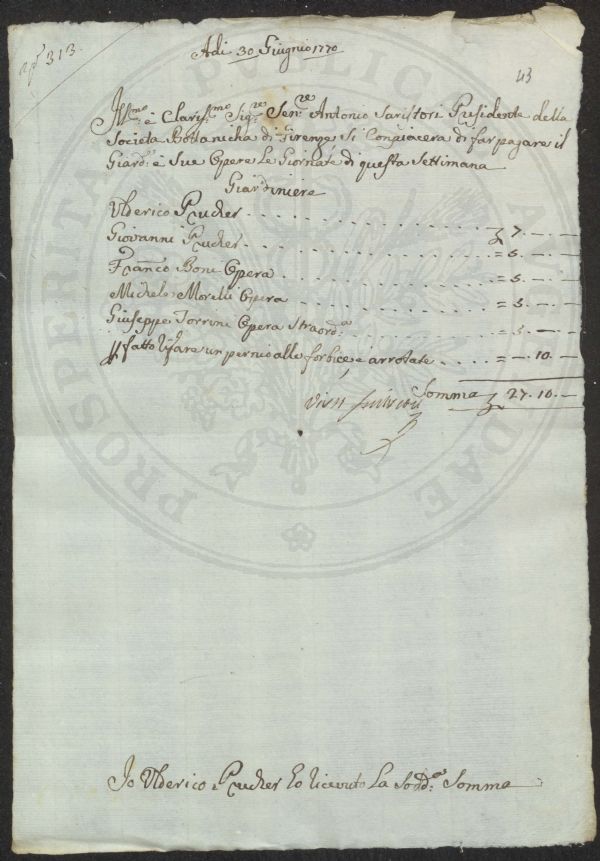 n.º 313.
Adi 30 Giugnio 1770
43
Ill.mo e Claris.mo Sig.re Sen.re Antonio Saristori Presidente della
Societa Bottanicha di Firenze Si Conpiacera di far pagare il
Giard.e e Sue Opere Le Giornate di questa Settimana
Giardiniere
Ulderico Prucher . . . . . . . . . . £ 7. — . —
Giovanni Prucher . . . . . . . . . . = 5. — . —
Franco Boni Opera . . . . . . . . . . = 5. — . —
Michele Morelli Opera . . . . . . . . . . = 5. — . —
Giuseppe Torrini Opera Straord.a . . . . . . . . . . = 5. — . —
P fatto rifare un pernio alle forbice, e arrotate . . . . = — . 10. —
Somma £ 27. 10. —
Visto
Io Ulderico Prucher ho ricevuto La Sodd.a Somma
PUBLICAE
PROSPERITATI
AUGENDAE